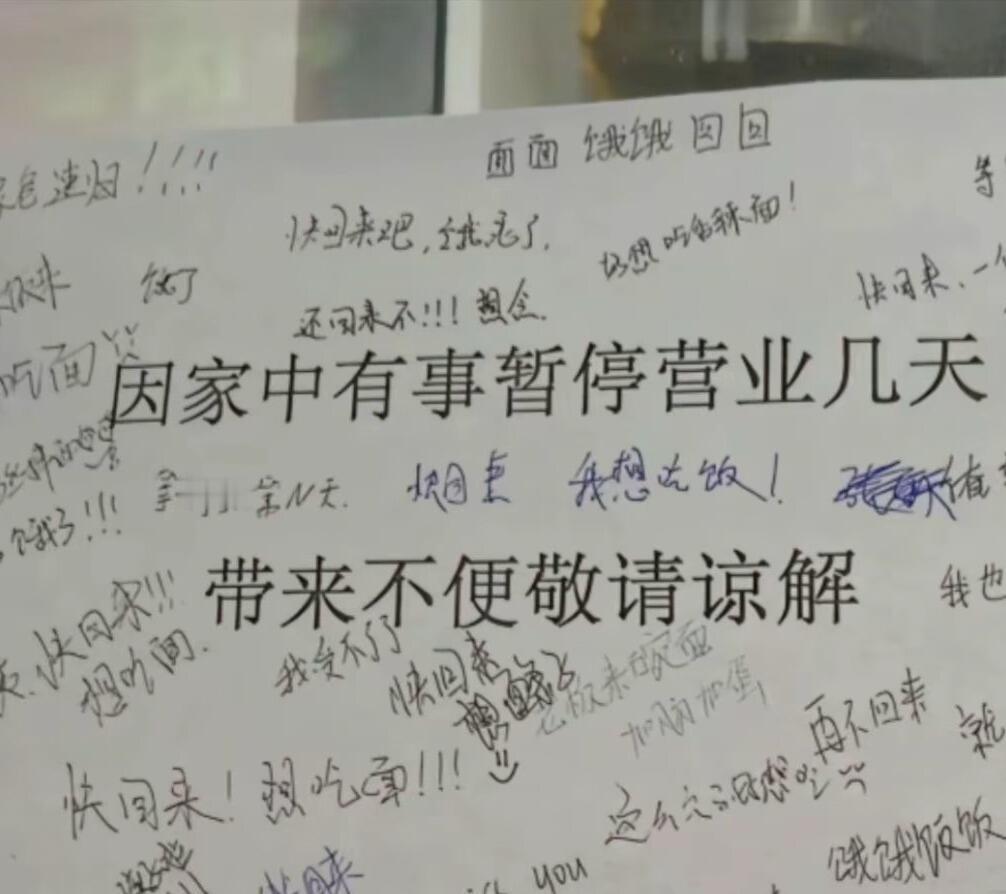 面面 饿饿 回回
速归!!!!
等
快回来吧,饿死了,
好想吃香辣面!
饿了
快回来,一
还回来不!!!想念.
吃面
因家中有事暂停营业几天
第N天.
快回来
我想吃饭!
饿了!!!
带来不便敬请谅解
我也
快回来!!!
想吃面.
我受不了了
快回来
老板来碗面
加肠加蛋
再不回来
就
快回来!想吃面!!!
you
饿饿饭饭